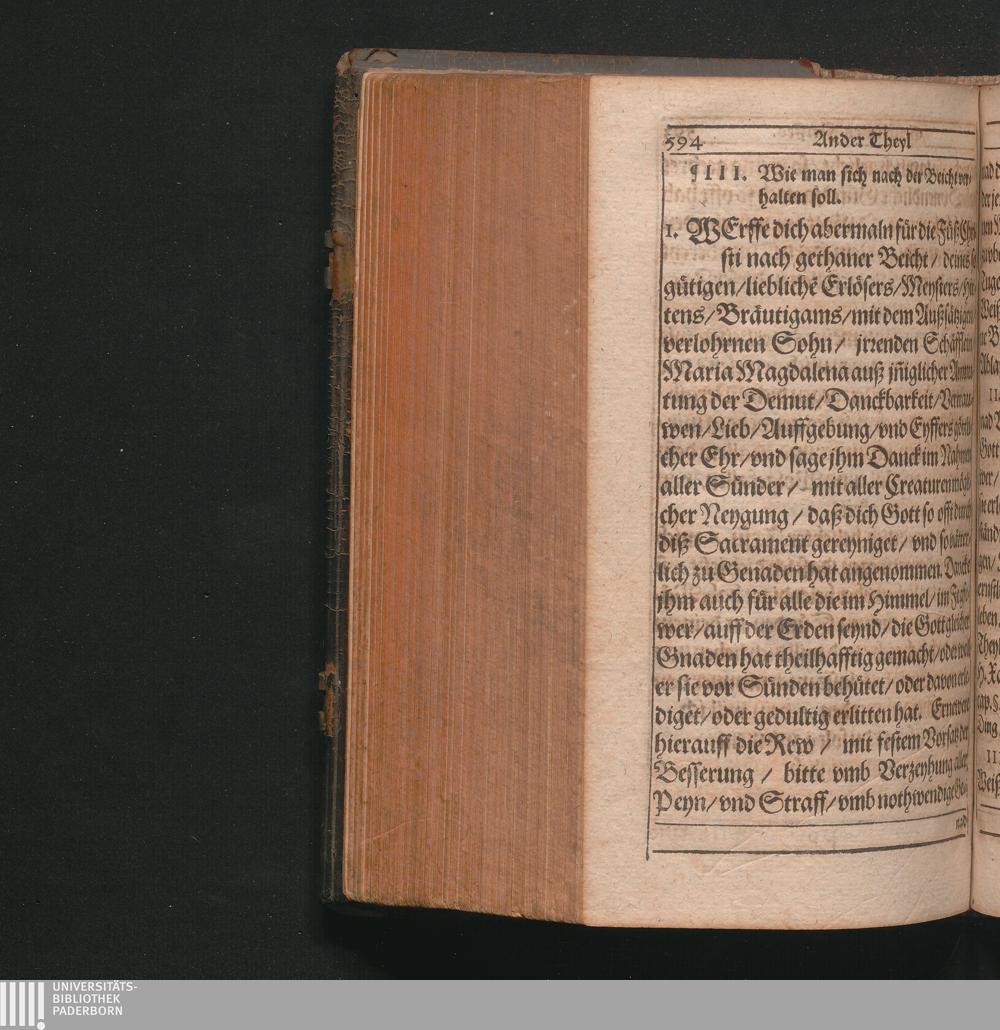 594 Ander Theyl
¶ III. Wie man sich nach der Beicht ver-
halten soll.
1. WErffe dich abermaln für die Füß Chri-
sti nach gethaner Beicht / deines so
gütigen / lieblichē Erlösers / Meysters / Hir-
tens / Bräutigams / mit dem Außsätzigen
verlohrnen Sohn / jrrenden Schäfflein
Maria Magdalena auß jñiglicher Anmu-
tung der Demut / Danckbarkeit / Vertrau-
wen / Lieb / Auffgebung / vnd Eyffers göttli-
cher Ehr / vnd sage jhm Danck im Nahmen
aller Sünder / mit aller Creaturen mögli-
cher Neygung / daß dich Gott so offt durch
diß Sacrament gereyniget / vnd so vätter-
lich zu Genaden hat angenommen. Dancke
jhm auch für alle die im Himmel / im Fegfe-
wer / auff der Erden seynd / die Gott gleicher
Gnaden hat theilhafftig gemacht / oder weil
er sie vor Sünden behütet / oder davon erle-
diget / oder gedultig erlitten hat. Ernewere
hierauff die Rew / mit festem Vorsatz der
Besserung / bitte vmb Verzeyhung aller
Peyn / vnd Straff / vmb nothwendige Ge-
nad
UNIVERSITÄTS-
BIBLIOTHEK
PADERBORN